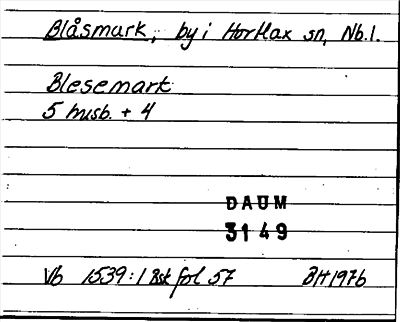 Blåsmark, by i Hortlax sn, Nb.l.
Blesemark
5 husb. + 4
DAUM
3149
Vb 1539:1 Bsk fol 57 BH1976